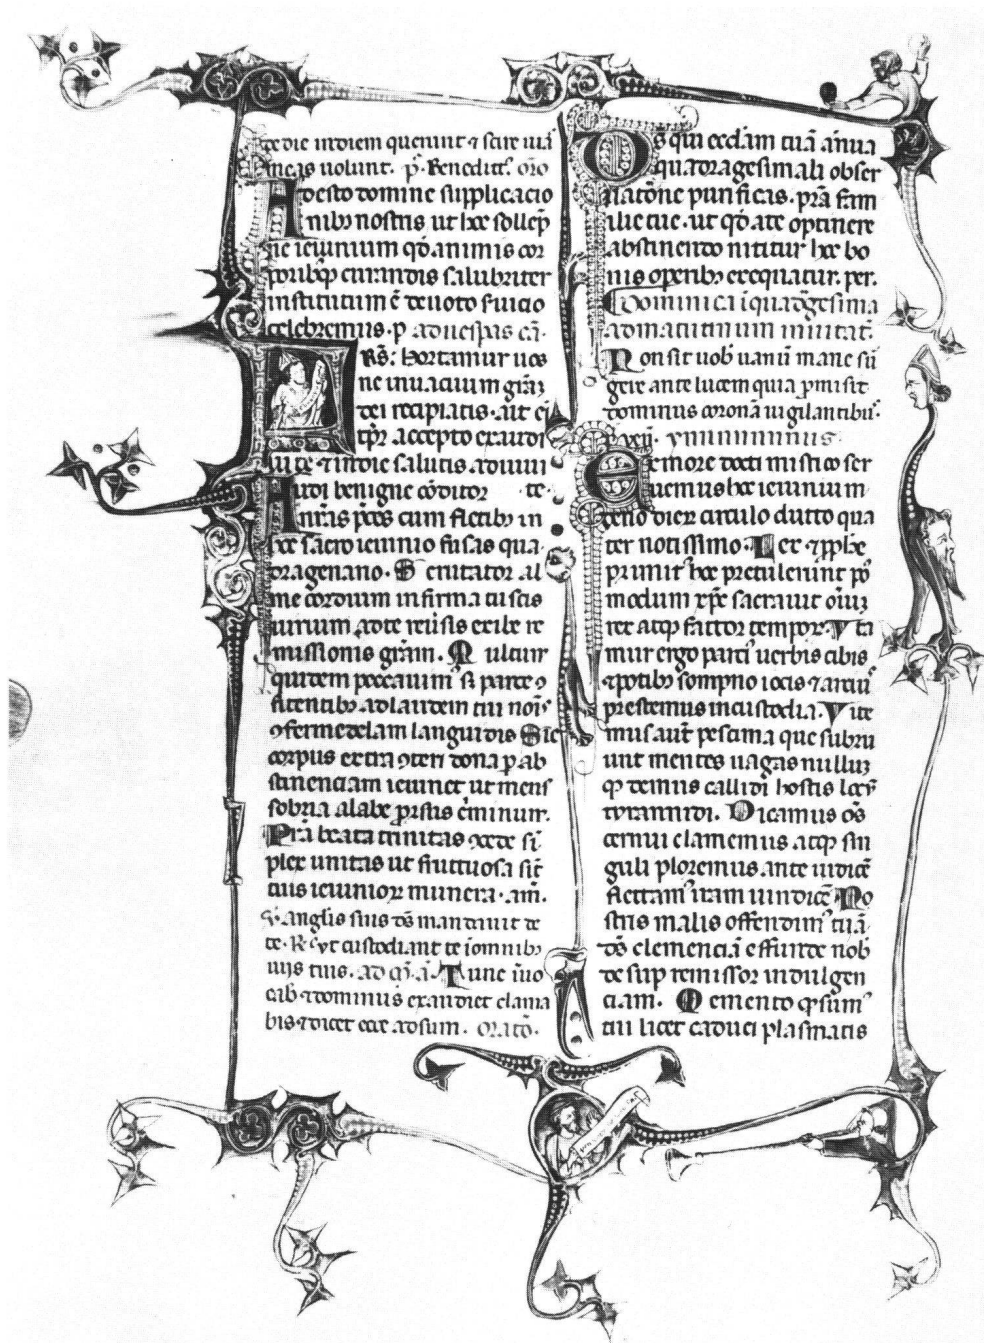 de die in diem querunt ⁊ scire uiā
meas uolunt. p̄. Benedict᷒. oro
Adesto domine supplicacio
nibȝ nostris ut hec sollep̄
ne ieiunium qd̄ animis cor
poribꝫqȝ curandis salubriter
institutum ē deuoto ſuicio
celebremus. p̄ ad uesꝑas ca.
Rs̄: hortamur uos
ne in uacuum grā3
dei recipiatis. ait ei
tempore accepto exaudi
ui te ⁊ in die salutis adiuui
Audi benigne cōditor te.
nr̄as p̄ces cum fletibȝ in
hoc sacro ieiunio fusas qua
dragenario. Scrutator al
me cordium infirma tu scis
uirium ad te reūsis exibe re
missionis gr̄am. Multum
quidem peccauim᷒ sȝ parce ꝯ
fitentibȝ ad laudem tui nōis
ꝯfer medelam languidis Sic
corpus extra ꝯteri dona ꝑ ab
stinenciam ieiunet ut mens
sobria a labe prorsus c̄minum.
Pr̄a beata trinitas ꝯcede si
plex unitas ut fructuosa sīt
tuis ieiuniorꝝ munera. am̄.
V᷒. anglis suis ds̄ mandauit de
te. R᷒. ut custodiant te ī omnibȝ
uiis tuis. ad m̄. a᷒. Tunc īuo
cabis ⁊ dominus exaudiet clama
bis ⁊ dicet ecce adsum. Orato.
Ds̄ qui eccl̄am tuā ānua
quadragesimali obser
uatōne purificas. pr̄a fam
ilie tue. ut qd̄ a te optinere
abstinendo nititur hec bo
nis operibȝ exequatur. per.
Dominica ī quadr̄gesima
ad matutinum inuitat̄.
Non sit uob̄ uanū mane su
gere ante lucem quia ꝓmisit
dominus coronā uigilantibus.
ymnus
Ex more docti mistico ser
uemus hoc ieiunium
deno dierꝝ circulo ducto qua
ter notissimo. Lex ⁊ ꝓphe
primit᷒ hoc pretulerunt po᷒
modum xp̄c sacrauit oīuȝ
rex atqȝ factor temporꝝ. Vta
mur ergo parci᷒ uerbis cibis
⁊ potibȝ sompno iocis ⁊ arciu᷒
prestemus in custodia. Vite
mus aut̄ pessima que subru
unt mentes uagas nulluȝ
qȝ demus callidi hostis locū
tyrannidi. Dicamus ōs
cernui clamemus atqȝ sin
guli ploremus ante iudicē
flectam᷒ iram uindicē No
stris malis offendim᷒ tuā
ds̄ clemenciā effunde nob̄
desuꝑ remissor indulgen
ciam. Memento qd̄ sum᷒
tui licet caduci plasmatis